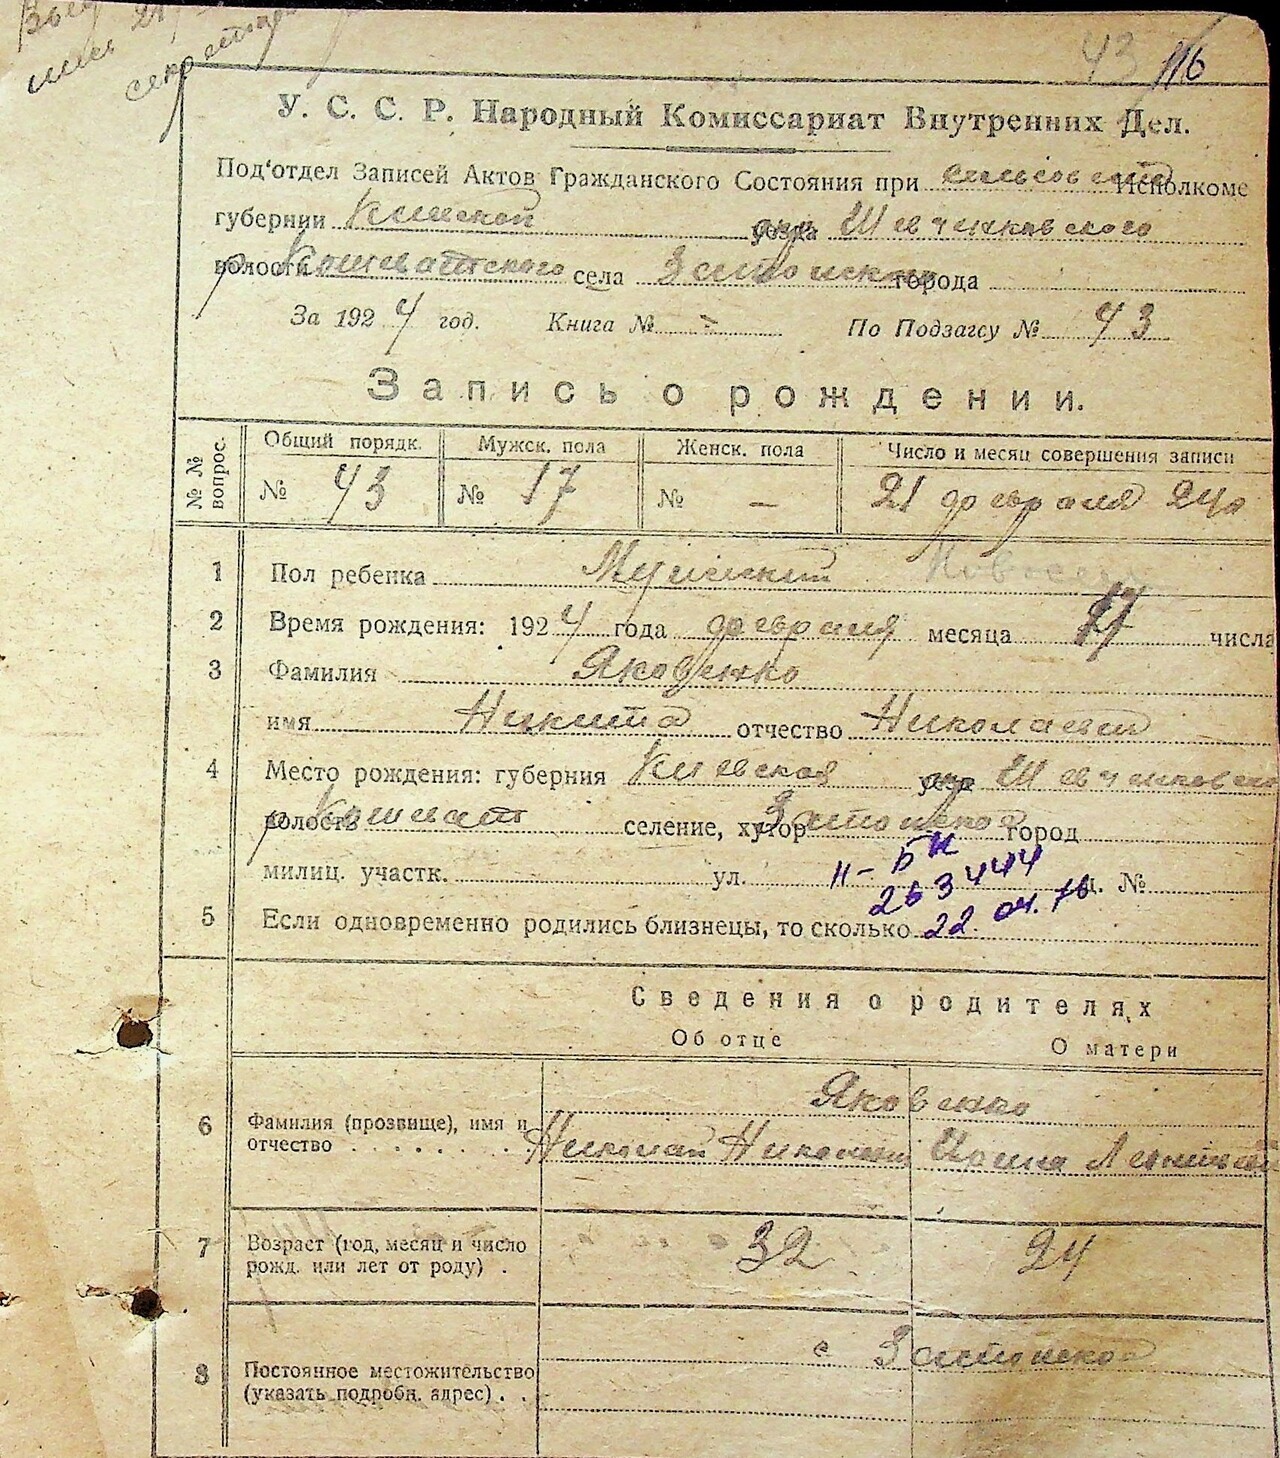 секретарь
43 116
У. С. С. Р. Народный Комиссариат Внутренних Дел.
Под'отдел Записей Актов Гражданского Состояния при сельсовета Исполкоме
губернии Киевской уезда окр Шевченковского
волости р Кошеватского села города
За 1924 год. Книга № - По Подзагсу № 43
Запись о рождении.
№ № вопрос. Общий порядк. Мужск. пола Женск. пола Число и месяц совершения записи
№ 43 № 17 № — 21 февраля 24 г
1 Пол ребенка Мужской
2 Время рождения: 1924 года февраля месяца 17 числа
3 Фамилия Яковенко
имя Никита отчество Николаевич
4 Место рождения: губерния Киевская уезд окр Шевченковск
волость р Кошеват селение, хутор город
милиц. участк. ул. д. №
II-БК
263444
22.04.76
5 Если одновременно родились близнецы, то сколько
Сведения о родителях
Об отце О матери
6 Фамилия (прозвище), имя и отчество Яковенко
Николай Николаев Ирина
7 Возраст (год, месяц и число рожд. или лет от роду) . 32 24
8 Постоянное местожительство (указать подробн. адрес) . . с